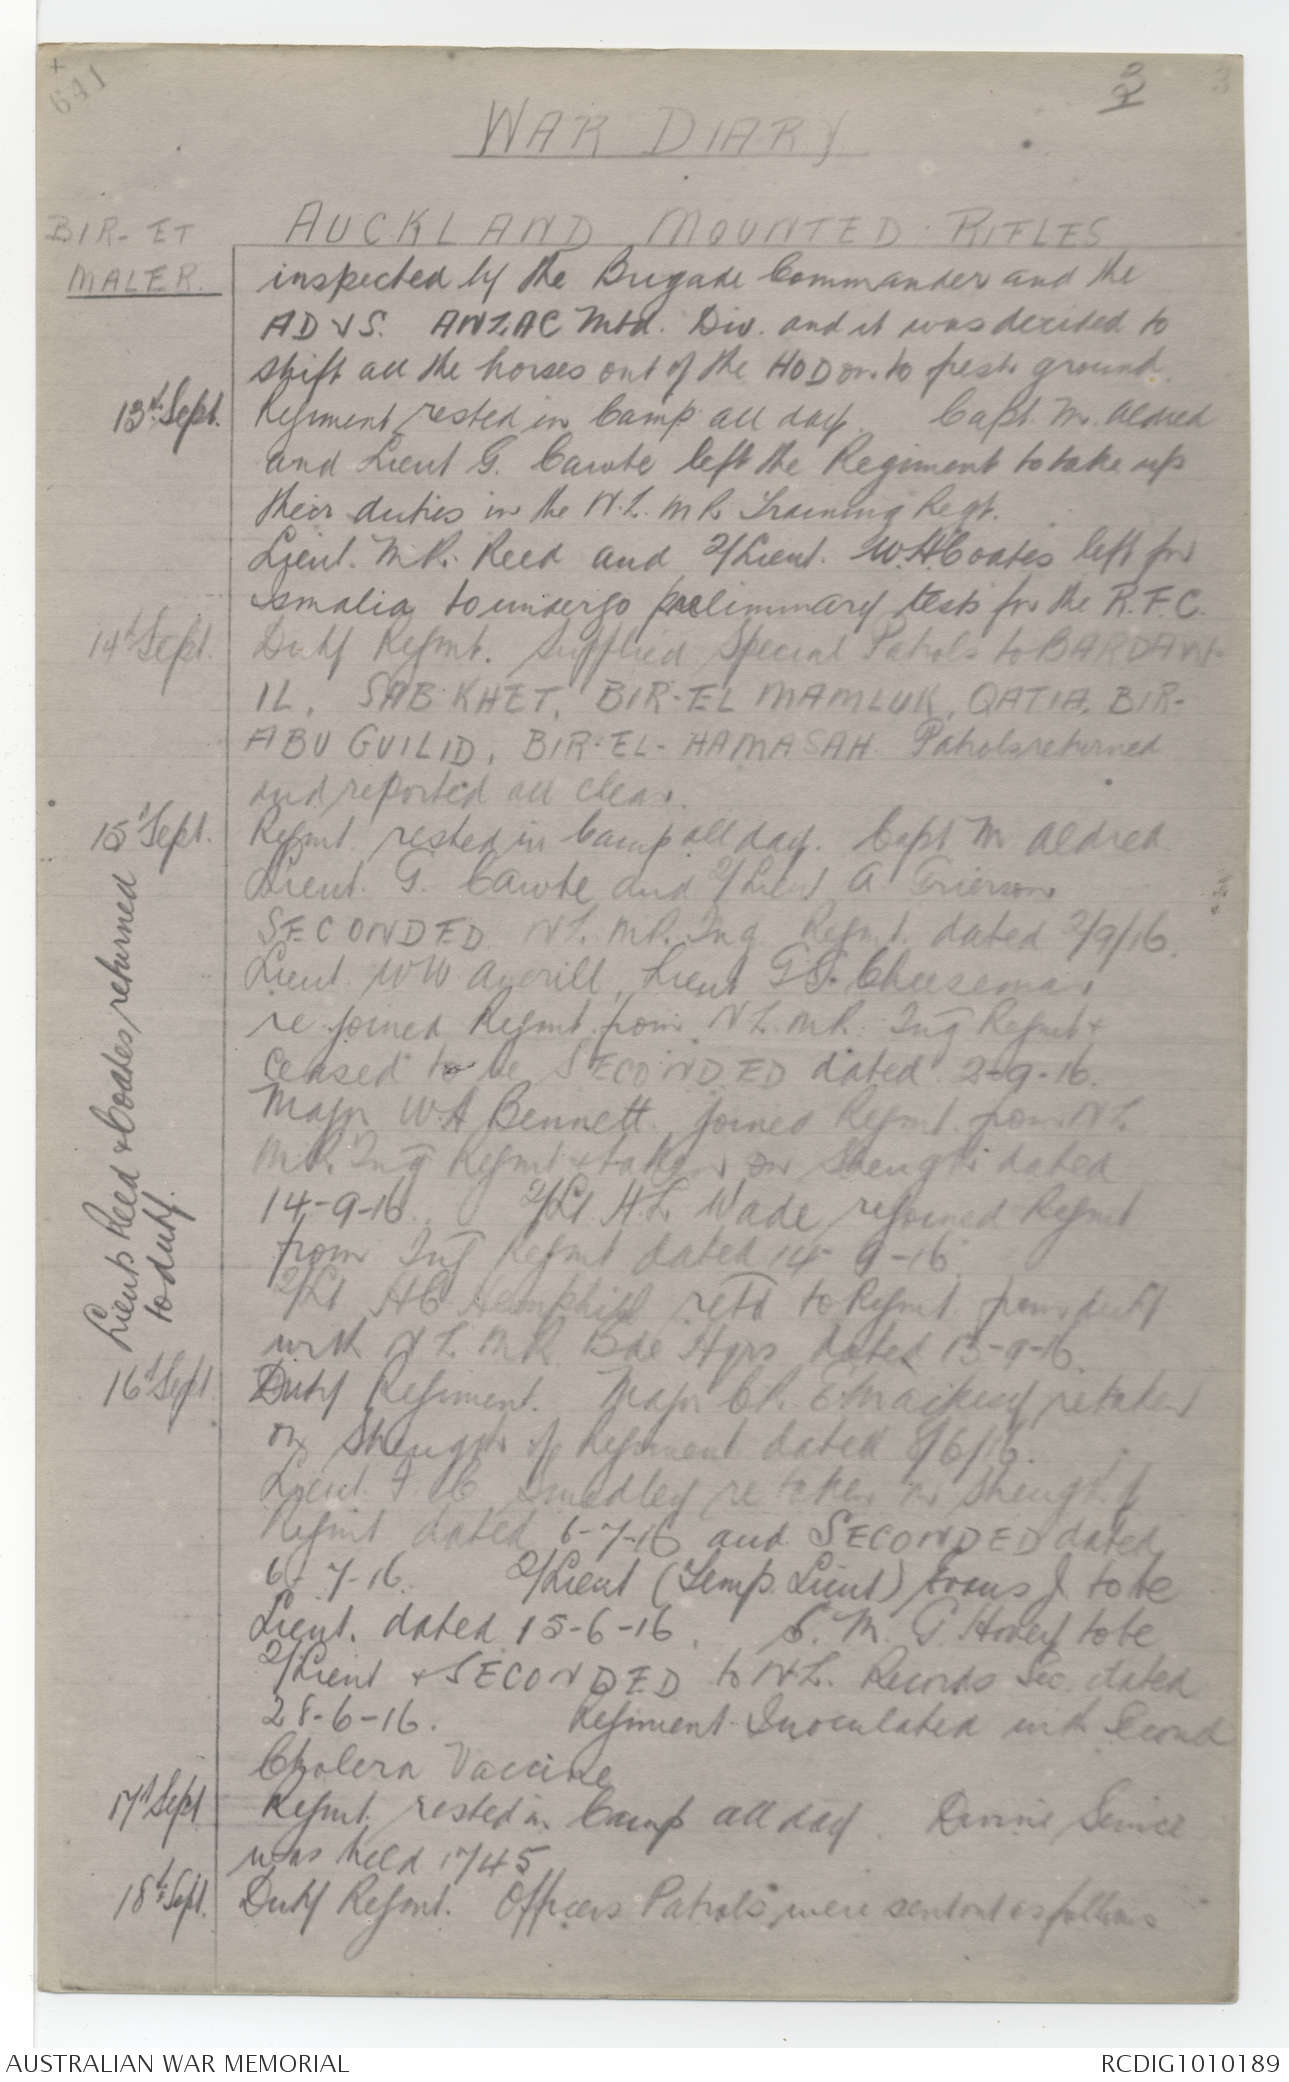 641
3
WAR DIARY
BIR-ET
MALER.
AUCKLAND MOUNTED RIFLES
inspected by the Brigade Commander and the
ADVS. ANZAC Mtd. Div. and it was decided to
shift all the horses out of the HOD on to fresh ground.
13th Sept. Regiment rested in Camp all day. Capt. M. Aldred
and Lieut G. Cawte left the Regiment to take up
their duties in the N.Z. M R. Training Regt.
Lieut. M.R. Reed and 2/Lieut. W.H. Coates left for
Ismalia to undergo prelimmary tests for the R.F.C.
14th Sept. Duty Regmt. Supplied Special Patrols to BARDAW-
IL, SABKHET, BIR-EL MAMLUK, QATIA, BIR-
ABU GUILID, BIR-EL-HAMASAH. Patrols returned
and reported all clear.
15 Sept. Regmt. rested in Camp all day. Capt M Aldred
Lieut. G. Cawte and 2/Lieut A Grierson
SECONDED N.Z. M.R. Tng Regmt. dated 2/9/16.
Lieut. WW Averill, Lieut G S. Cheeseman
re joined Regmt. from N Z. M.R. Tng Regmt &
ceased to be SECONDED dated 2-9-16.
Major W.A Bennett joined Regmt. from N Z
M.R. Tng Regmt & taken on Strength dated
14-9-16. 2/Lt H.L Wade rejoined Regmt
from Tng Regmt dated 14-9-16.
2/Lt HC Hemphill retd to Regmt from duty
with N Z M R Bde Hqrs dated 13-9-16.
Lieuts Reed & Coates returned
to duty.
16th Sept Duty Regiment. Major C.R. E Mackesy retaken
on Strength of Regiment dated 8/6/16.
Lieut. F C Smedley re taken on Strength of
Regmt dated 6-7-16 and SECONDED dated
6-7-16. 2/Lieut (Temp. Lieut) Evans J to be
Lieut. dated 15-6-16. S. M. G. Honey to be
2/Lieut & SECONDED to N.Z. Records Sec dated
28-6-16. Regiment Inoculated with Second
Cholera Vaccine
17th Sept Regmt. rested in Camp all day. Divine Service
was held 1745
18th Sept. Duty Regmt. Officers Patrols were sent out as follows
AUSTRALIAN WAR MEMORIAL
RCDIG1010189